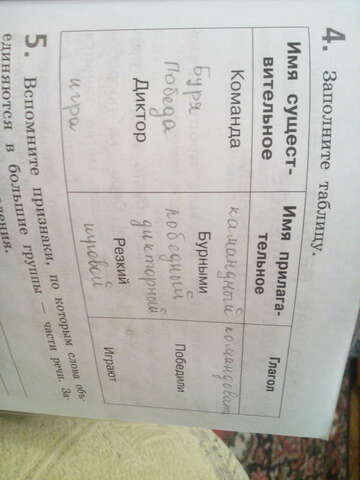 4. Заполните таблицу.
Имя сущест-
вительное
Имя прилага-
тельное
Глагол
Команда камандный командоват
Буря Бурными
Победа победный Победили
Диктор дикторный
Резкий
игра игровой Играют
5. Вспомните признаки, по которым слова объ-
единяются в большие группы — части речи. За-